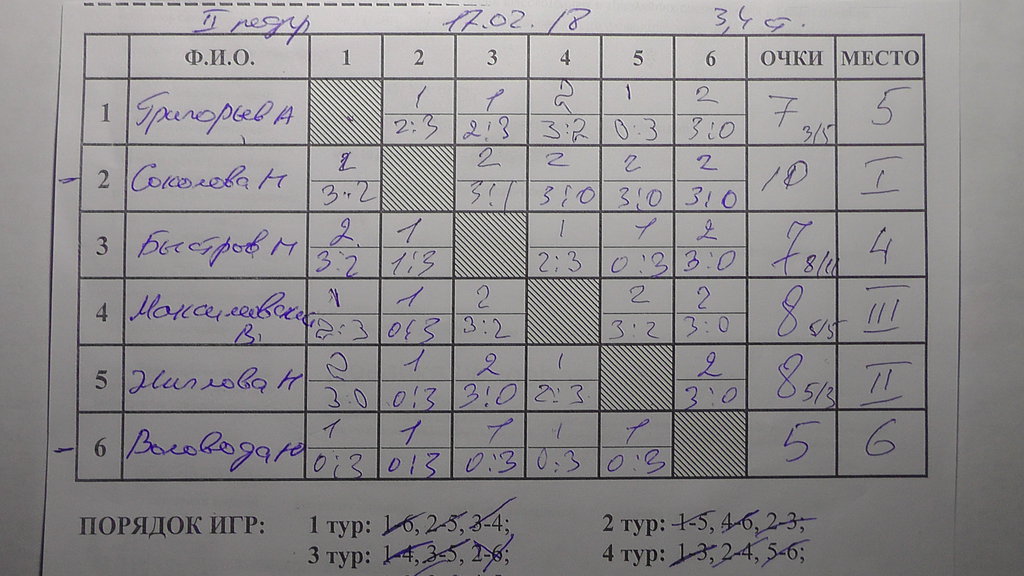 II 17.02. 18 3,4 ст.
Ф.И.О. 1 2 3 4 5 6 ОЧКИ МЕСТО
1 Григорьев А 1 1 2 1 2 7 5
2:3 2:3 3:2 0:3 3:0 3/5
2 Соколова М 2 2 2 2 2 10 I
3:2 3:1 3:0 3:0 3:0
3 Быстров М 2 1 1 1 2 7 4
3:2 1:3 2:3 0:3 3:0
4 1 1 2 2 2 8 III
В. 2:3 0:3 3:2 3:2 3:0
5 2 1 2 1 2 8 II
3:0 0:3 3:0 2:3 3:0 5/3
6 1 1 1 1 1 5 6
0:3 0:3 0:3 0:3 0:3
ПОРЯДОК ИГР: 1 тур: 1-6, 2-5, 3-4; 2 тур: 1-5, 4-6, 2-3;
3 тур: 1-4, 3-5, 2-6; 4 тур: 1-3, 2-4, 5-6;